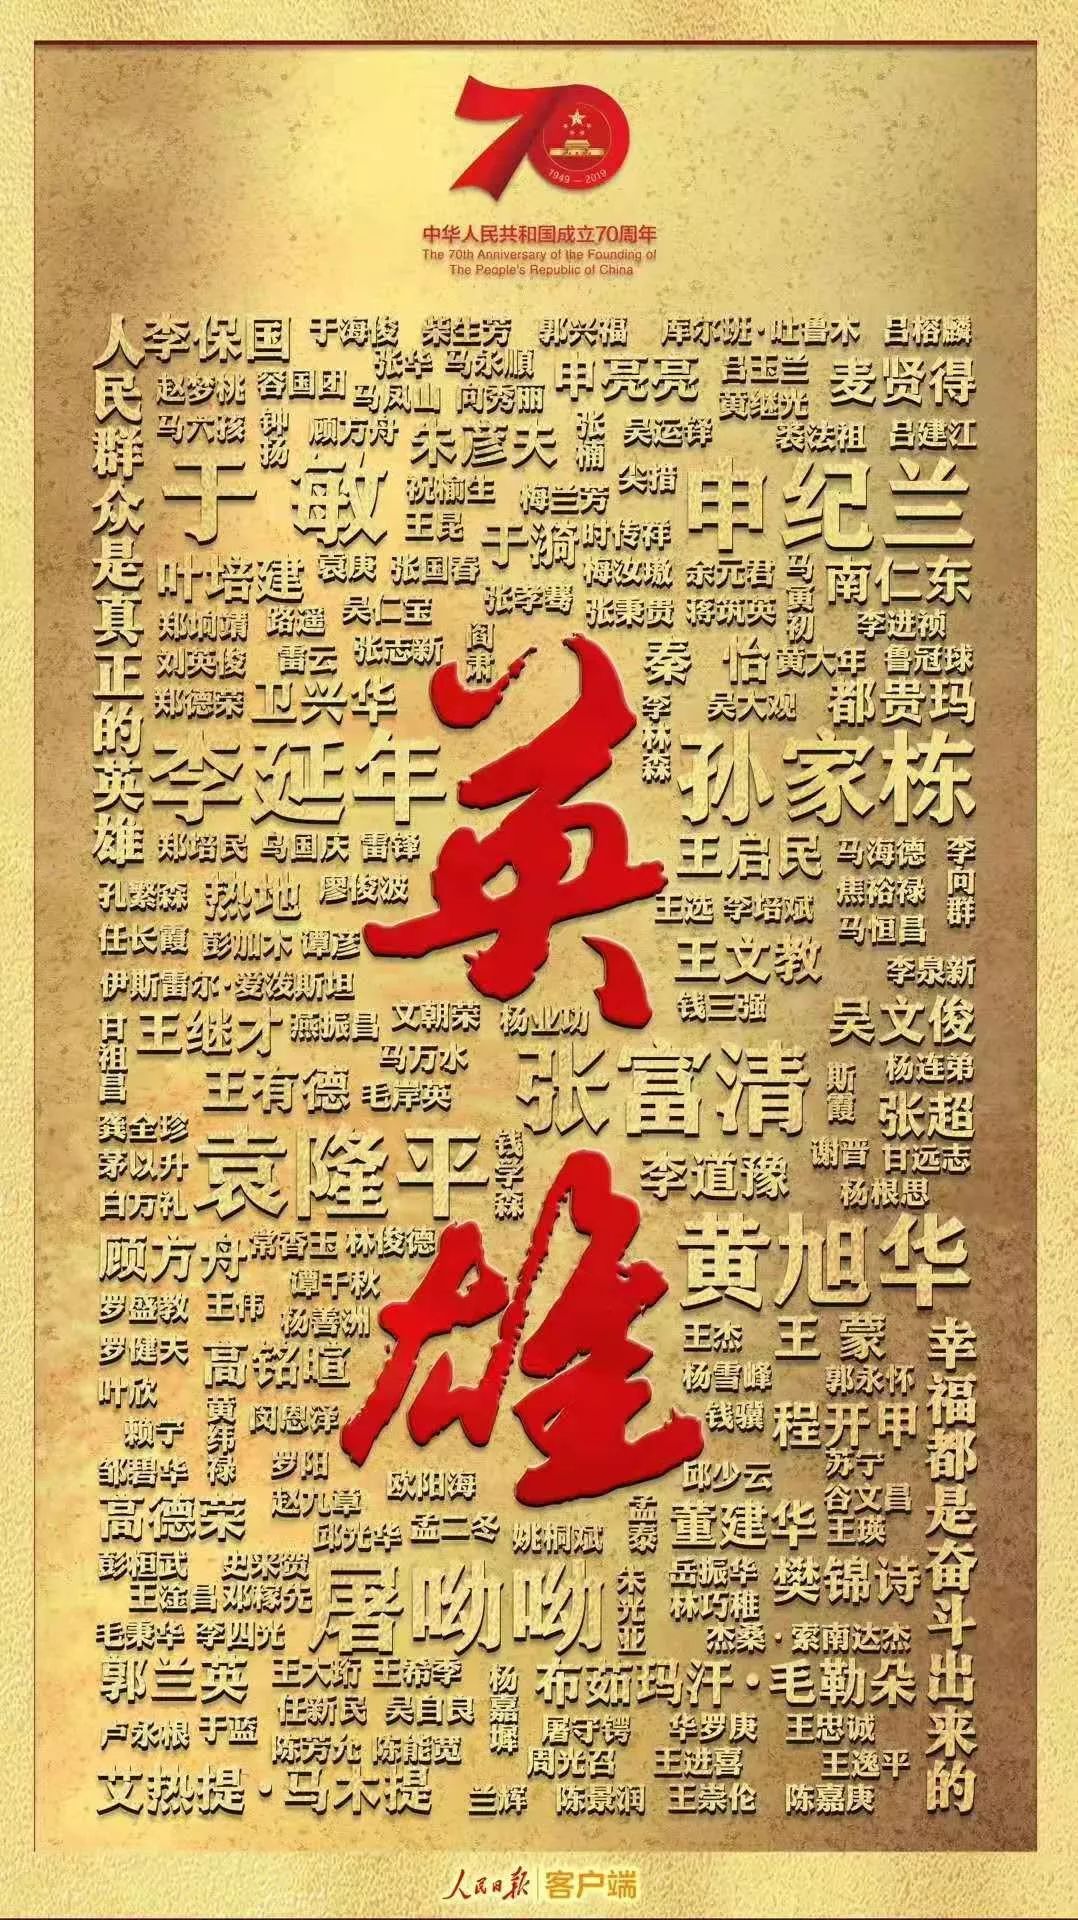 70
1949—2019
中华人民共和国成立70周年
The 70th Anniversary of the Founding of
The People's Republic of China
人民群众是真正的英雄
李保国 于海俊 柴生芳 郭兴福 库尔班·吐鲁木 吕榕麟
张华 马永顺 申亮亮 吕玉兰 麦贤得
赵梦桃 容国团 马凤山 向秀丽 黄继光
马六孩 钟扬 顾方舟 朱彦夫 张楠 吴运铎 裘法祖 吕建江
于敏 祝榆生 梅兰芳 尖措 申纪兰
王昆 于漪 时传祥
叶培建 袁庚 张国春 梅汝璈 余元君 马寅初 南仁东
郑垧靖 路遥 吴仁宝 张孝骞 张秉贵 蒋筑英 李进祯
刘英俊 雷云 张志新 阎肃 秦怡 黄大年 鲁冠球
郑德荣 卫兴华 李林森 吴大观 都贵玛
李延年 孙家栋
郑培民 乌国庆 雷锋 王启民 马海德 李向群
孔繁森 热地 廖俊波 王选 李培斌 焦裕禄
任长霞 彭加木 谭彦 王文教 马恒昌
伊斯雷尔·爱泼斯坦 李泉新
甘祖昌 王继才 燕振昌 文朝荣 杨业功 钱三强 吴文俊
马万水 张富清 斯霞 杨连弟
王有德 毛岸英 张超
龚全珍 袁隆平 钱学森 李道豫 谢晋 甘远志
茅以升 杨根思
白万礼
顾方舟 常香玉 林俊德 黄旭华
谭千秋
罗盛教 王伟 杨善洲 王杰 王蒙
罗健夫 高铭暄 杨雪峰 郭永怀
叶欣 黄纬禄 闵恩泽 钱骥 程开甲
赖宁 罗阳 苏宁
邹碧华 欧阳海 邱少云 谷文昌
高德荣 赵九章 邱光华 孟二冬 姚桐斌 孟泰 董建华 王瑛
彭桓武 史来贺 屠呦呦 朱光亚 岳振华 樊锦诗
王淦昌 邓稼先 林巧稚
毛秉华 李四光 杰桑·索南达杰
郭兰英 王大珩 王希季 杨嘉墀 布茹玛汗·毛勒朵
任新民 吴自良
卢永根 于蓝 屠守锷 华罗庚 王忠诚
陈芳允 陈能宽 周光召 王进喜 王逸平
艾热提·马木提 兰辉 陈景润 王崇伦 陈嘉庚
英雄
幸福都是奋斗出来的
人民日报 客户端